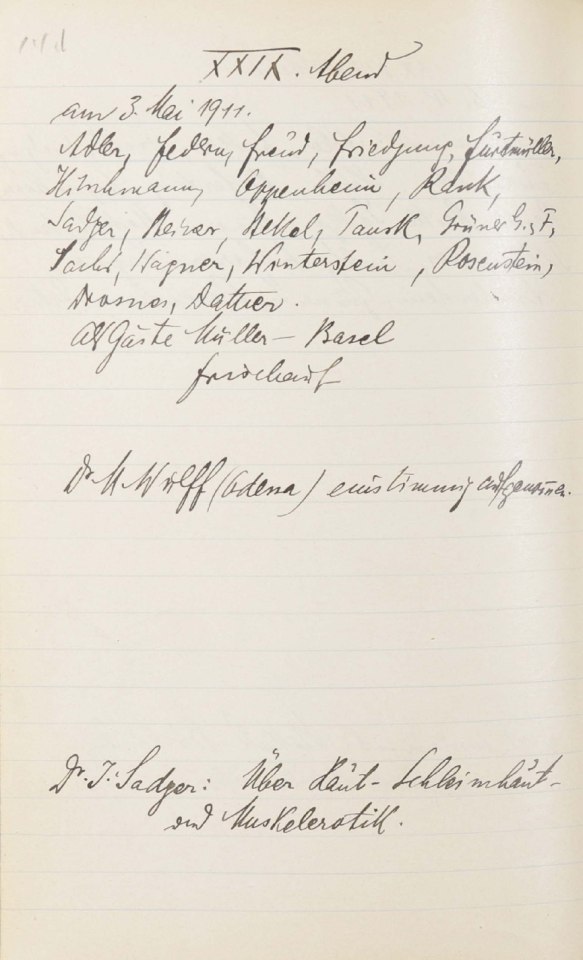 XXIX. Abend
am 3. Mai 1911.
Adler, Federn, Freud, Friedjung, Furtmüller,
Hitschmann, Oppenheim, Rank,
Sadger, Steiner, Stekel, Tausk, Grüner G., F,
Sachs, Wagner, Winterstein, Rosenstein,
Drosnes, Dattner.
Als Gäste Müller – Basel
Frischauf
Dr M. Wulff (Odessa) einstimmig aufgenommen.
Dr. J. Sadger: Über Haut- Schleimhaut-
und Muskelerotik.